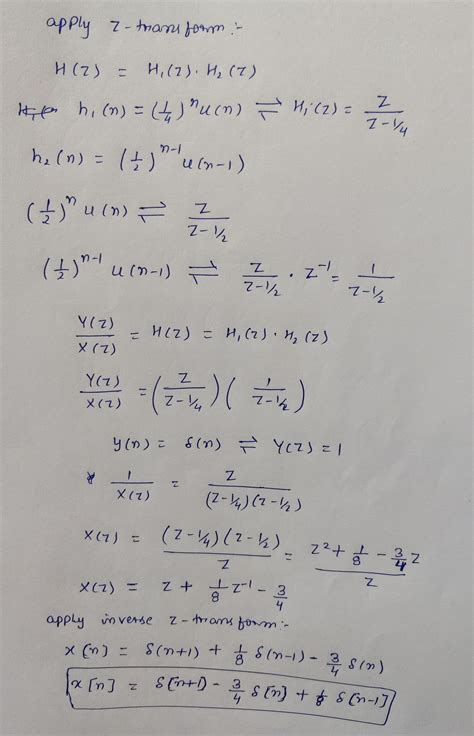 apply z-transform:-
H(z) = H₁(z). H₂(z)
h₁(n) = (1/4)ⁿ u(n) ⇌ H₁(z) = z/(z-1/4)
h₂(n) = (1/2)ⁿ⁻¹ u(n-1)
(1/2)ⁿ u(n) ⇌ z/(z-1/2)
(1/2)ⁿ⁻¹ u(n-1) ⇌ z/(z-1/2) · z⁻¹ = 1/(z-1/2)
Y(z)/X(z) = H(z) = H₁(z). H₂(z)
Y(z)/X(z) = (z/(z-1/4)) (1/(z-1/2))
y(n) = δ(n) ⇌ Y(z) = 1
1/X(z) = z/((z-1/4)(z-1/2))
X(z) = (z-1/4)(z-1/2)/z = (z² + 1/8 - 3/4 z)/z
X(z) = z + 1/8 z⁻¹ - 3/4
apply inverse z-transform:-
x[n] = δ(n+1) + 1/8 δ(n-1) - 3/4 δ(n)
x[n] = δ[n+1] - 3/4 δ[n] + 1/8 δ[n-1]